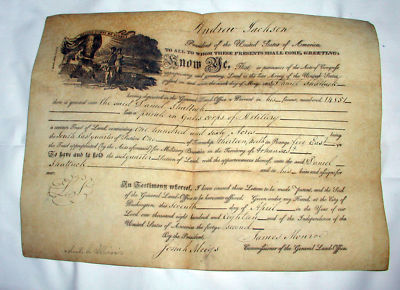 Andrew Jackson
President of the United States of America
TO ALL TO WHOM THESE PRESENTS SHALL COME, GREETING:
KNOW YE, That, in pursuance of the Acts of Congress
appropriating and granting Land to the late Army of the United States
having deposited in the General Land-Office a Warrant in his favor, numbered 14551
there is granted unto the said Daniel Shattuck
late a private in corps of Artillery
a certain Tract of Land, containing One hundred and sixty Acres, being
the quarter of Section One of Township Thirteen South in Range five East in
the Tract appropriated (by the Acts aforesaid) for Military Bounties in the Territory of Arkansas
To have and to hold the said quarter Section of Land, with the appurtenances thereof, unto the said Daniel
Shattuck and to his heirs and assigns for-
ever.
In Testimony whereof, I have caused these Letters to be made Patent, and the Seal
of the General Land-Office to be hereunto affixed. Given under my Hand, at the City of
Washington, this seventh day of April in the Year of our
Lord one thousand eight hundred and Eighteen and of the Independence of the
United States of America the forty second
By the President, James Monroe
Josiah Meigs Commissioner of the General Land-Office.